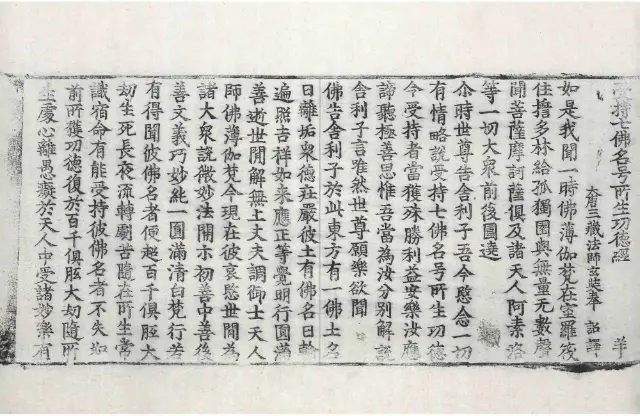 受持七佛名号所生功德經 羊
大唐三藏法師玄奘奉 詔譯
如是我聞一時佛薄伽梵在室羅筏
住誓多林給孤獨園與無量无數聲
聞菩薩摩訶薩俱及諸天人阿素洛
等一切大衆前後圍遶
尒時世尊告舍利子吾今愍念一切
有情略說受持七佛名号所生功德
令受持者當獲殊勝利益安樂汝應
諦聽極善思惟吾當為汝分別解說
舍利子言唯然世尊願樂欲聞
佛告舍利子於此東方有一佛土名
曰離垢衆德莊嚴彼土有佛名曰輪
遍照吉祥如来應正等覺明行圓滿
善逝世間解無上丈夫調御士天人
師佛薄伽梵今現在彼哀愍世間為
諸大衆說微妙法開示初善中善後
善文義巧妙純一圓滿清白梵行若
有得聞彼佛名者便越百千俱胝大
劫生死長夜流轉劇苦隨在所生常
識宿命有能受持彼佛名者不失如
前所獲功德復於百千俱胝大劫隨所
生處心離愚癡於天人中受諸妙樂有